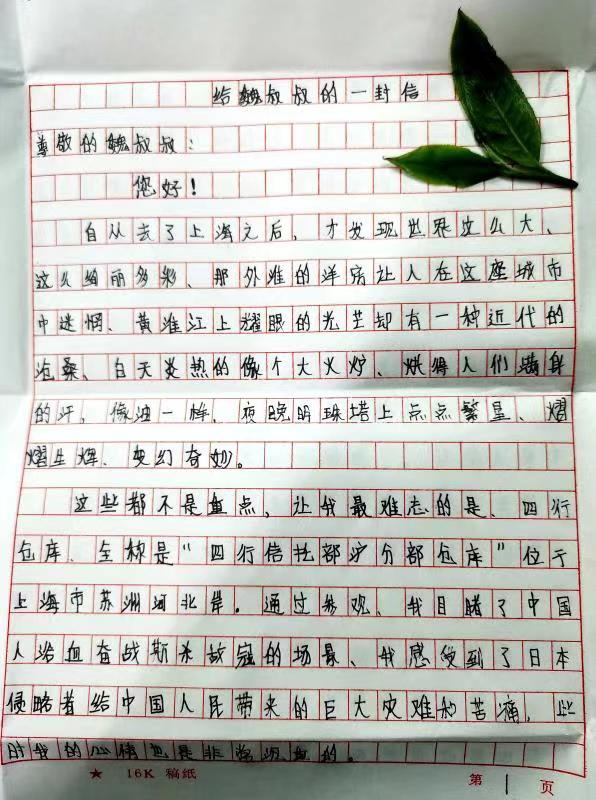 给魏叔叔的一封信
尊敬的魏叔叔：
您好！
自从去了上海之后，才发现世界这么大、
这么绚丽多彩、那外滩的洋房让人在这座城市
中迷惘、黄淮江上耀眼的光芒却有一种近代的
沧桑、白天炎热的像个大火炉、烘得人们满身
的汗，像油一样、夜晚明珠塔上点点繁星、熠
熠生辉、变幻奇妙。
这些都不是重点，让我最难忘的是、四行
仓库、全称是“四行信托部沪分部仓库”位于
上海市苏洲河北岸。通过参观、我目睹了中国
人浴血奋战斯杀敌寇的场景、我感受到了日本
侵略者给中国人民带来的巨大灾难和苦痛，此
时我的心情也是非常沉重的。
★ 16K 稿纸
第 1 页